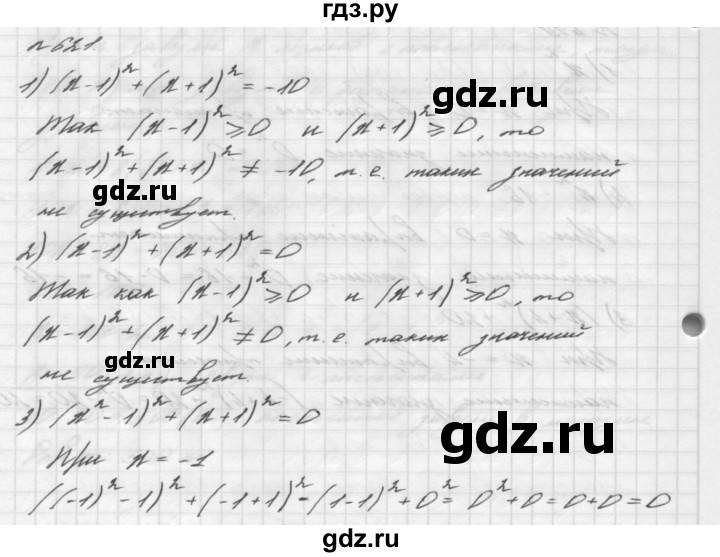 гдз.ру
№ 621.
1) (x-1)² + (x+1)² = -10
Так (x-1)² ≥ 0 и (x+1)² ≥ 0, то
(x-1)² + (x+1)² ≠ -10, т.е. таких значений
gdz.ru
не существует.
2) (x-1)² + (x+1)² = 0
Так как (x-1)² ≥ 0 и (x+1)² ≥ 0, то
(x-1)² + (x+1)² ≠ 0, т.е. таких значений
gdz.ru
не существует.
3) (x²-1)² + (x+1)² = 0
gdz.ru
При x = -1
((-1)²-1)² + (-1+1)² = (1-1)² + 0² = 0² + 0 = 0 + 0 = 0